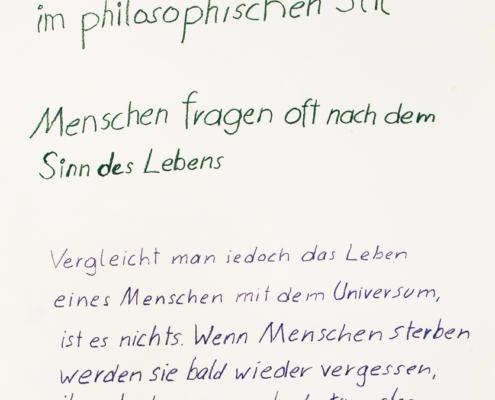 im philosophischen Stil
Menschen fragen oft nach dem
Sinn des Lebens
Vergleicht man iedoch das Leben
eines Menschen mit dem Universum,
ist es nichts. Wenn Menschen sterben
werden sie bald wieder vergessen,